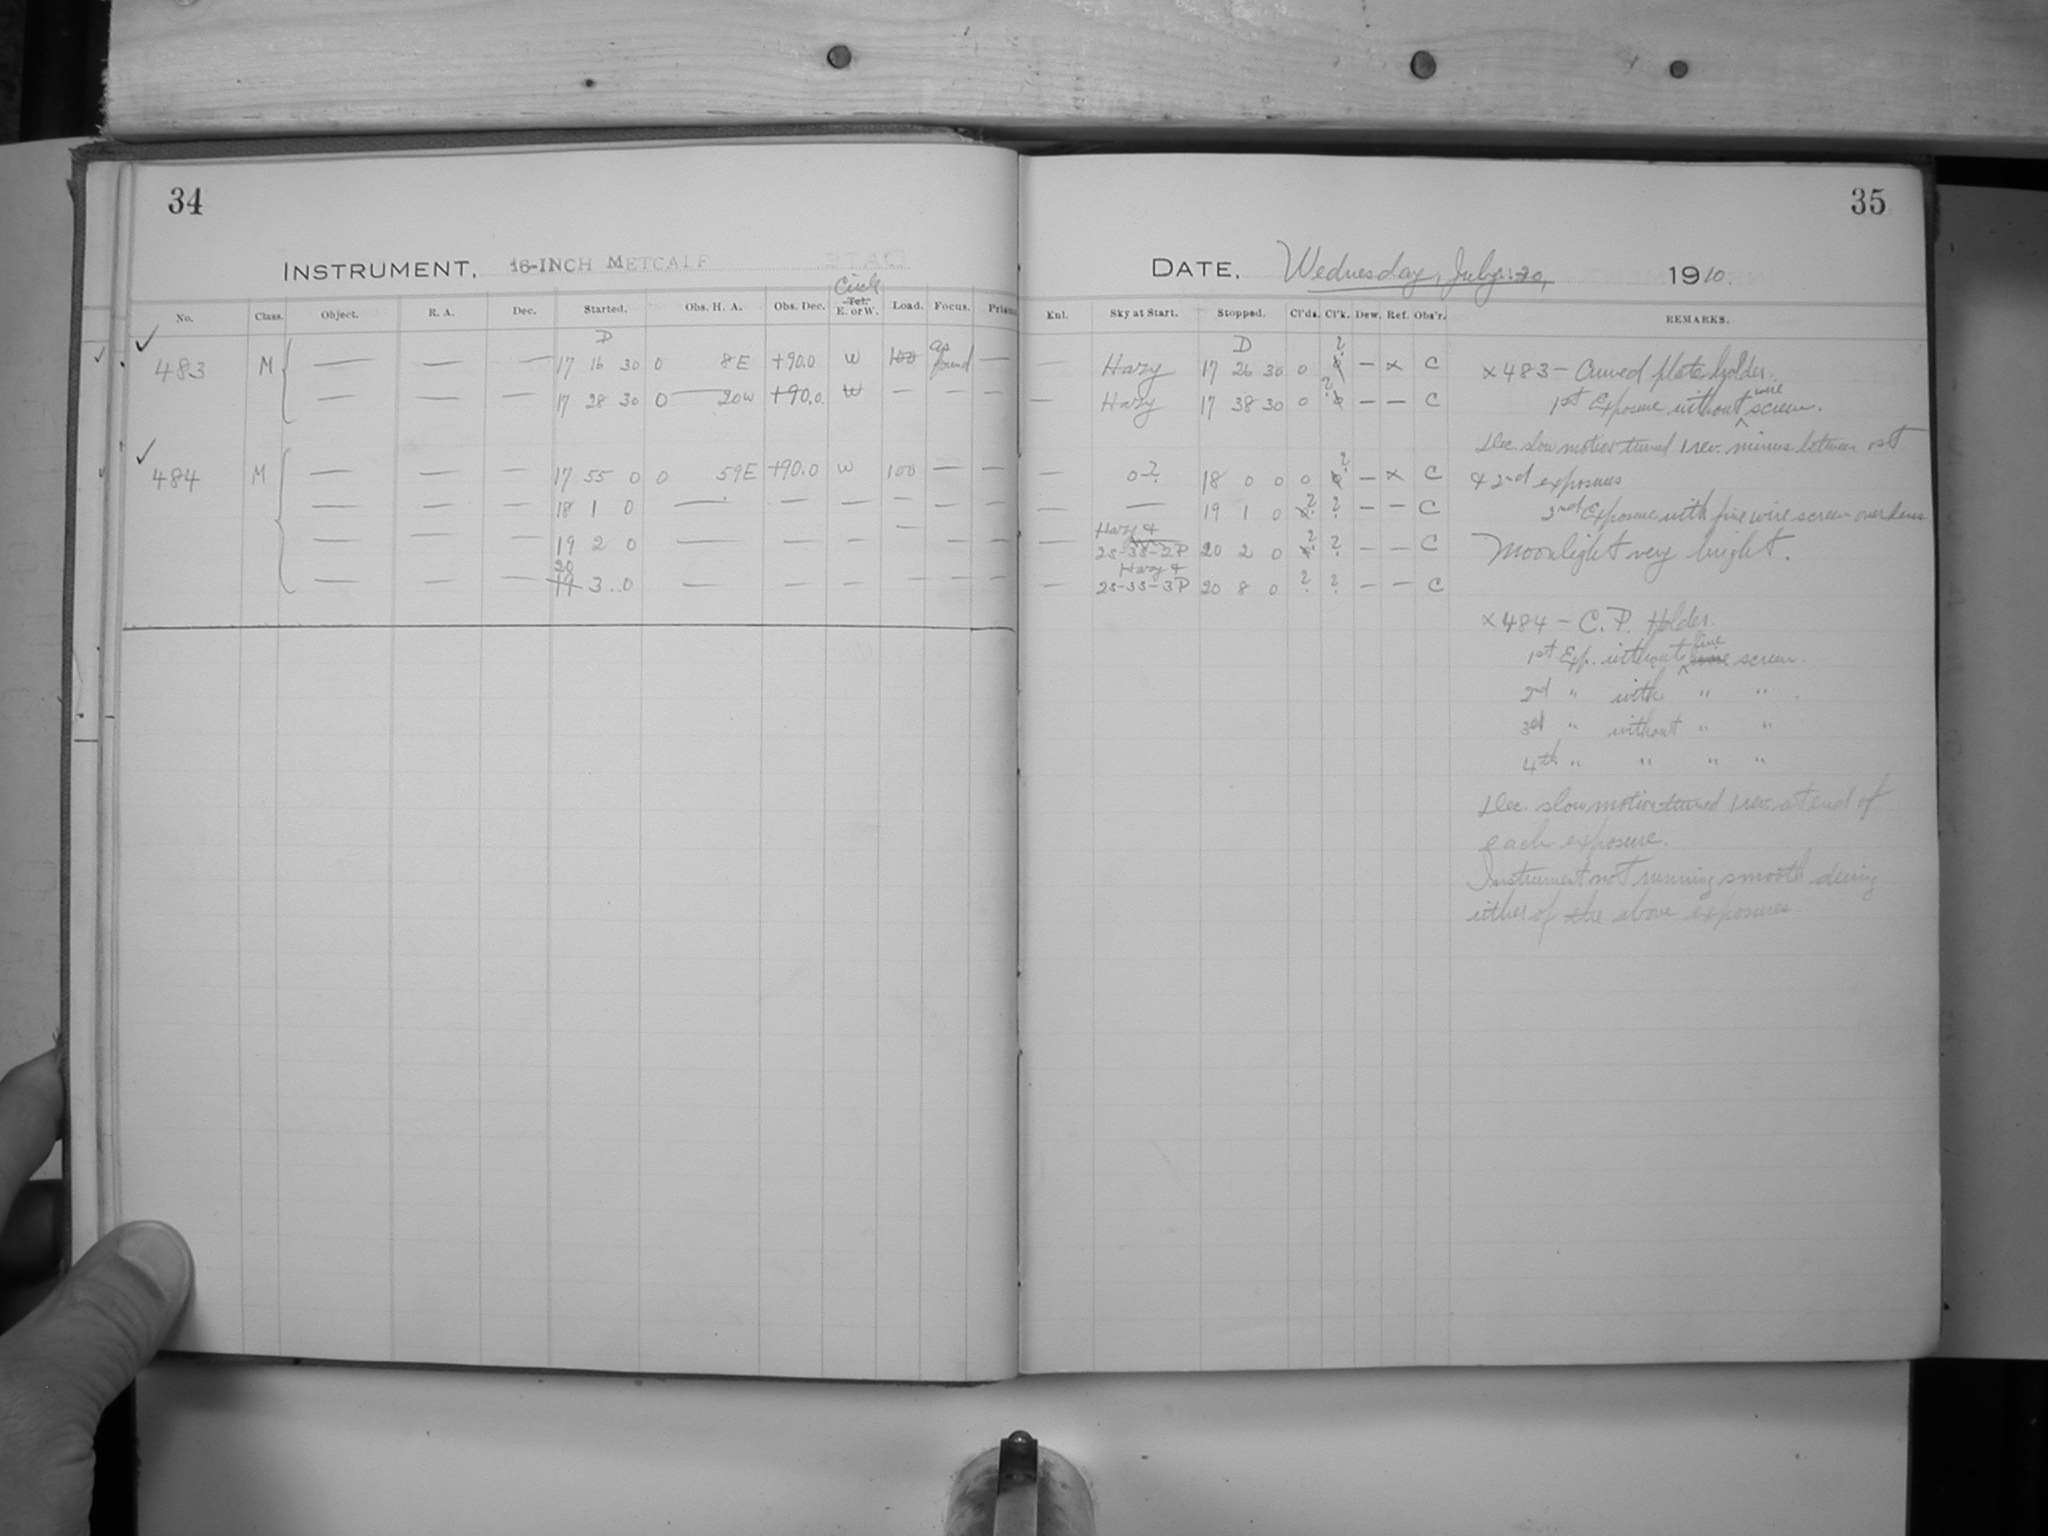 34
INSTRUMENT. 16-INCH METCALF
Circle
No. Class. Object. R. A. Dec. Started. Obs. H. A. Obs. Dec. Tel. E. or W. Load. Focus. Prism
D
483 M { — — — 17 16 30 0 8E +90.0 W 100 as found —
— — — 17 28 30 0 — 20W +90.0. W — — —
484 M { — — — 17 55 0 0 59E +90.0 W 100 — —
— — — 18 1 0 — — — — — —
— — — 19 2 0 — — — — — —
20
— — — 19 3 0 — — — — — —
35
DATE. Wednesday, July 20, 1910.
Exl. Sky at Start. Stopped. Cl'ds. Cl'k. Dew. Ref. Obs'r. REMARKS.
D ?
— Hazy 17 26 30 0 0 — x C
— Hazy 17 38 30 0 ? 0 — — C
— 0-? 18 0 0 0 ? 0 — x C
— — 19 1 0 ? ? — — C
— Hazy & 2S-3S-2P 20 2 0 ? ? — — C
— Hazy & 2S-3S-3P 20 8 0 ? ? — — C
x 483 — Curved plate holder.
1st Exposure without wire screen.
Dec. slow motion turned 1 rev. minus between 1st
& 2nd exposures
2nd Exposure with fine wire screen over lens
Moonlight very bright.
x 484 — C. P. Holder.
1st Exp. without fine wire screen.
2nd " with " " .
3rd " without " "
4th " " " "
Dec. slow motion turned 1 rev. at end of
each exposure.
Instrument not running smooth during
either of the above exposures.